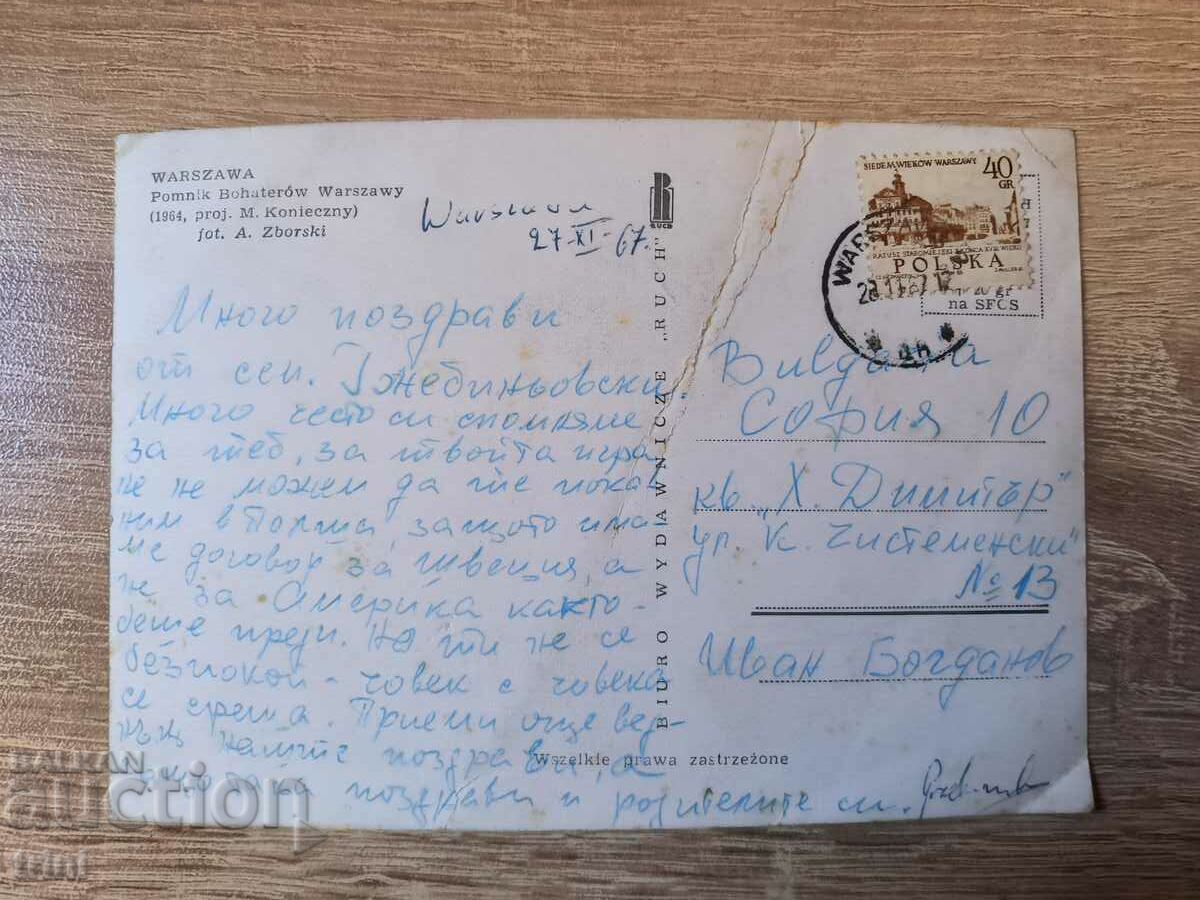 WARSZAWA
Pomnik Bohaterów Warszawy
(1964, proj. M. Konieczny)
fot. A. Zborski
Warszawa
27-XI-67.
RUCH
BIURO WYDAWNICZE „RUCH"
SIEDEM WIEKÓW WARSZAWY
40 GR
RATUSZ STAROMIEJSKI Z KOŃCA XVIII WIEKU
POLSKA
na SFCS
Много поздрави
от сем. Гжебиньовски.
Много често си спомняме
за теб, за твойта игра
не можем да те пока-
ним в Полша, защото има
ме договор за Швеция, а
не за Америка както
беше преди. Но ти не се
безпокой - човек с човека
се среща. Приеми още вед-
нъж нашите поздрави, а
поздрави и родителите си.
Bulgaria
София 10
кв. „Х. Димитър"
ул. К. Чистеменски"
№ 13
Иван Богданов
Wszelkie prawa zastrzeżone
BALKAN
auction
trini